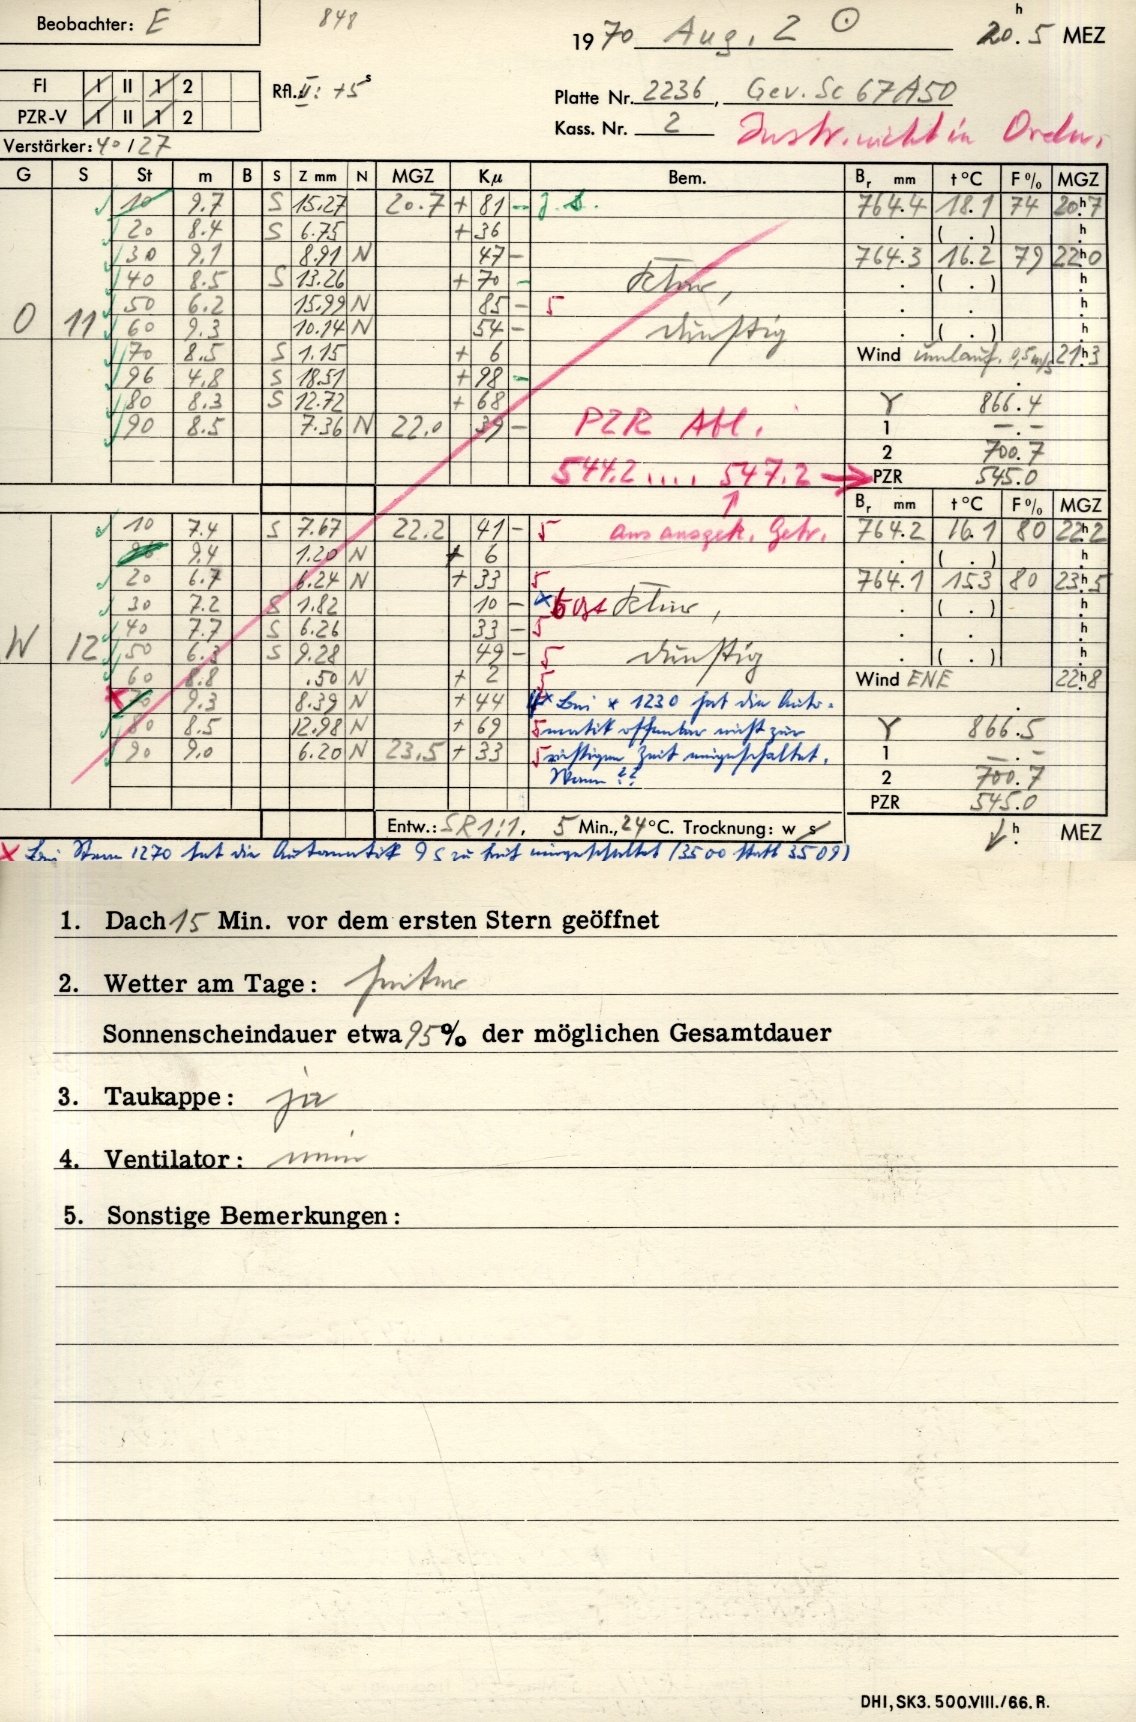 Beobachter: E
848
1970 Aug. 2 ☉ 20.5 h MEZ
FI I II 1 2
PZR-V I II 1 2
Rfl. II: +5 s
Platte Nr. 2236, Gev. Sc 67A50
Kass. Nr. 2
Instr. nicht in Ordn.
Verstärker: 40/27
G S St m B S Z mm N MGZ Kμ Bem. Br mm t °C F % MGZ
10 9.7 S 15.27 20.7 + 81 – 764.4 18.1 74 20h7
20 8.4 S 6.75 + 36 . ( . ) h
30 9.1 8.91 N 47 – 764.3 16.2 79 22h0
40 8.5 S 13.26 + 70 – klar, . ( . ) h
50 6.2 15.99 N 85 – 5 . . h
O 11 60 9.3 10.14 N 54 – dunstig . ( . ) h
70 8.5 S 1.15 + 6 Wind umlauf. 0,5 m/s 21h3
96 4.8 S 18.51 + 98 –
80 8.3 S 12.72 + 68 γ 866.4
90 8.5 7.36 N 22.0 39 – PZR Abl. 1 – . –
2 700.7
544.2 .... 547.2 → PZR 545.0
Br mm t °C F % MGZ
10 7.4 S 7.67 22.2 41 – 5 aus ausgek. Getr. 764.2 16.1 80 22h2
9.4 1.20 N + 6 . ( . ) h
20 6.7 6.24 N + 33 5 764.1 15.3 80 23h5
30 7.2 S 1.82 10 – klar, . ( . ) h
40 7.7 S 6.26 33 – 5 . . h
W 12 50 6.3 S 9.28 49 – 5 dunstig . ( . ) h
60 8.8 .50 N + 2 5 Wind ENE 22h8
× 70 9.3 8.39 N + 44 × Bei * 1230 hat die Auto-
80 8.5 12.98 N + 69 5 matik offenbar nicht zur γ 866.5
90 9.0 6.20 N 23.5 + 33 5 richtigen Zeit eingeschaltet. 1 – . –
Wann ?? 2 700.7
PZR 545.0
Entw.: SR 1:1, 5 Min., 24 °C. Trocknung: w s
h MEZ
× Bei Stern 1270 hat die Automatik 9 s zu früh eingeschaltet (3500 statt 3509)
1. Dach 15 Min. vor dem ersten Stern geöffnet
2. Wetter am Tage: heiter
Sonnenscheindauer etwa 95% der möglichen Gesamtdauer
3. Taukappe: ja
4. Ventilator: nein
5. Sonstige Bemerkungen:
DHI, SK3. 500. VIII. / 66. R.